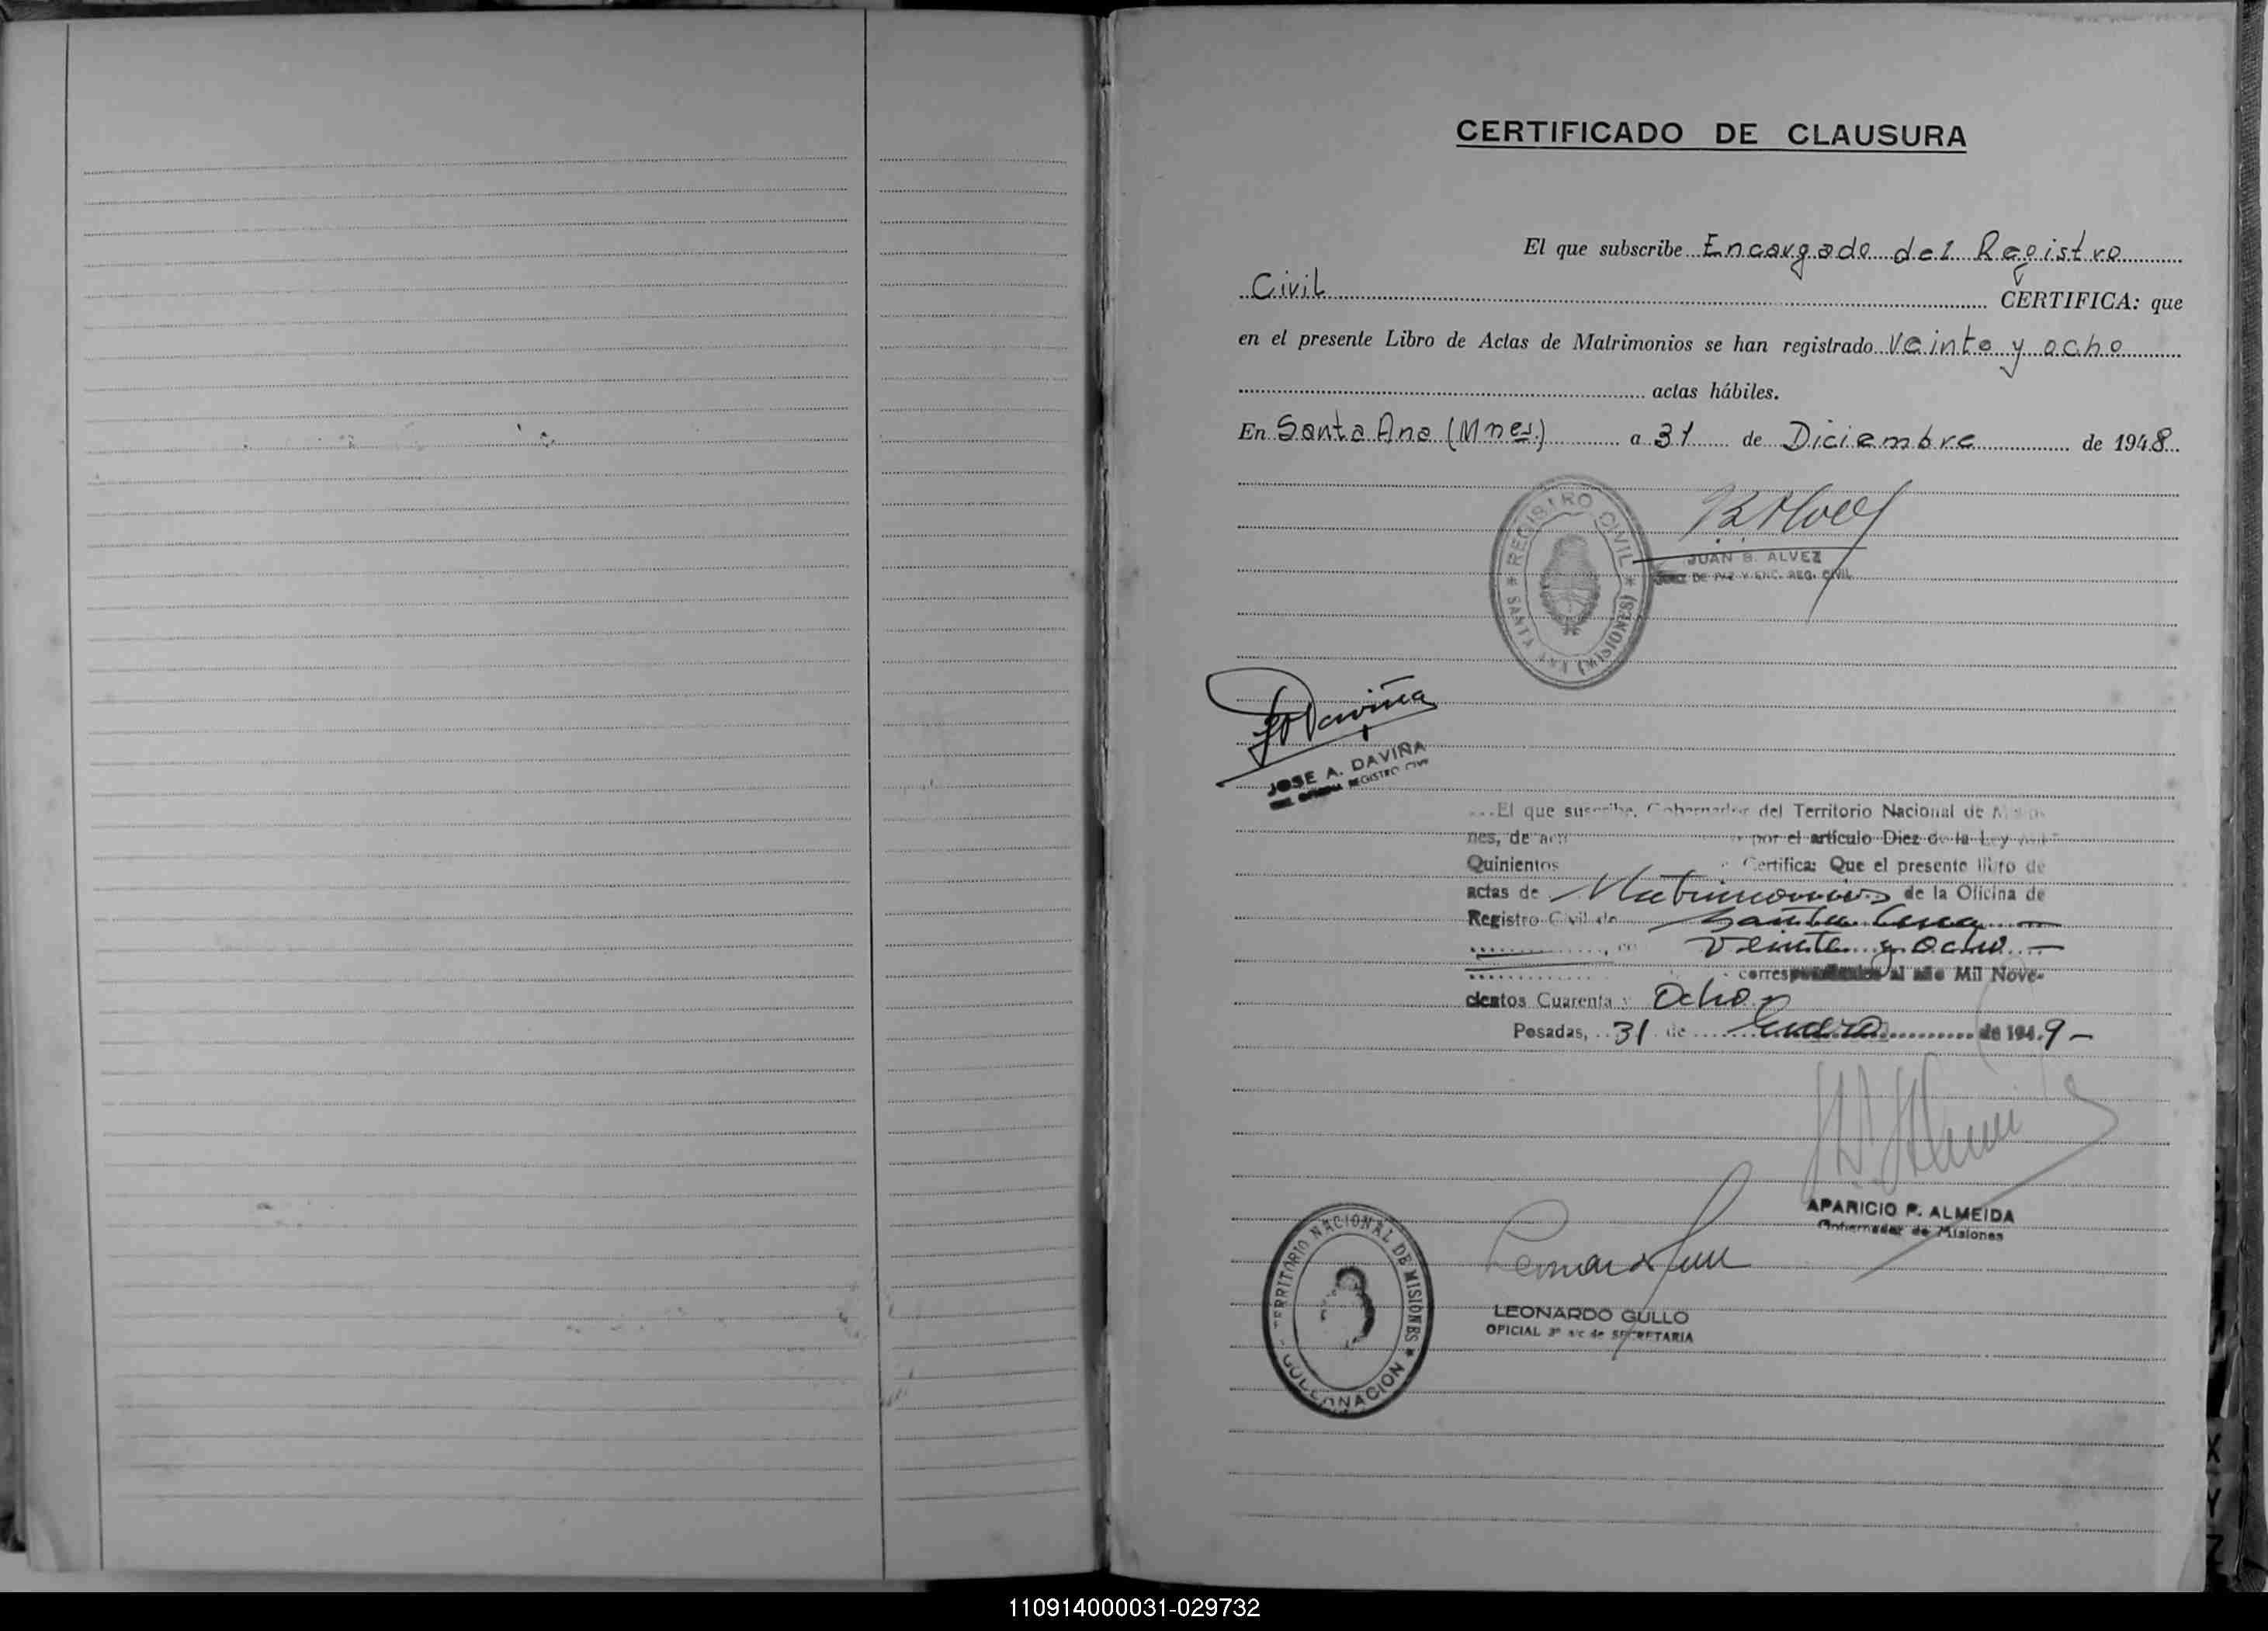 CERTIFICADO DE CLAUSURA
El que subscribe Encargado del Registro
Civil CERTIFICA: que
en el presente Libro de Actas de Matrimonios se han registrado Veinte y ocho
actas hábiles.
En Santa Ana (Mnes.) a 31 de Diciembre de 1948
REGISTRO CIVIL
SANTA ANA (MISIONES)
JUAN B. ALVEZ
JUEZ DE PAZ Y ENC. REG. CIVIL
JDaviña
JOSE A. DAVIÑA
REGISTRO CIVIL
El que suscribe, Gobernador del Territorio Nacional de
nes, de por el artículo Diez de la Ley
Quinientos Certifica: Que el presente libro de
actas de Matrimonios de la Oficina de
Registro Civil de Santa Ana
Veinte y ocho
correspondientes al año Mil Nove-
cientos Cuarenta y Ocho
Posadas, 31 de Enero de 1949
APARICIO P. ALMEIDA
Gobernador de Misiones
TERRITORIO NACIONAL DE MISIONES
GOBERNACION
LEONARDO GULLO
OFICIAL 3º a/c de SECRETARIA
110914000031-029732